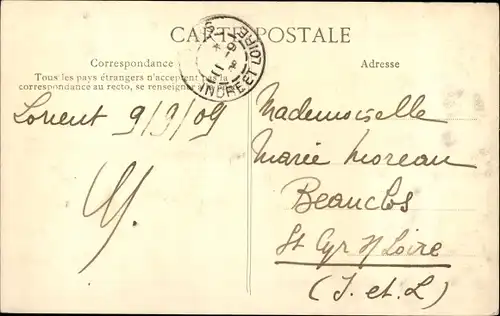 CARTE POSTALE
Correspondance
Tous les pays étrangers n'acceptent pas la
correspondance au recto, se renseigner à
Lorient 9/9/09
M.
Adresse
Mademoiselle
Marie Moreau
Beauclos
St Cyr s/ Loire
(I. et. L)
INDRE ET LOIRE